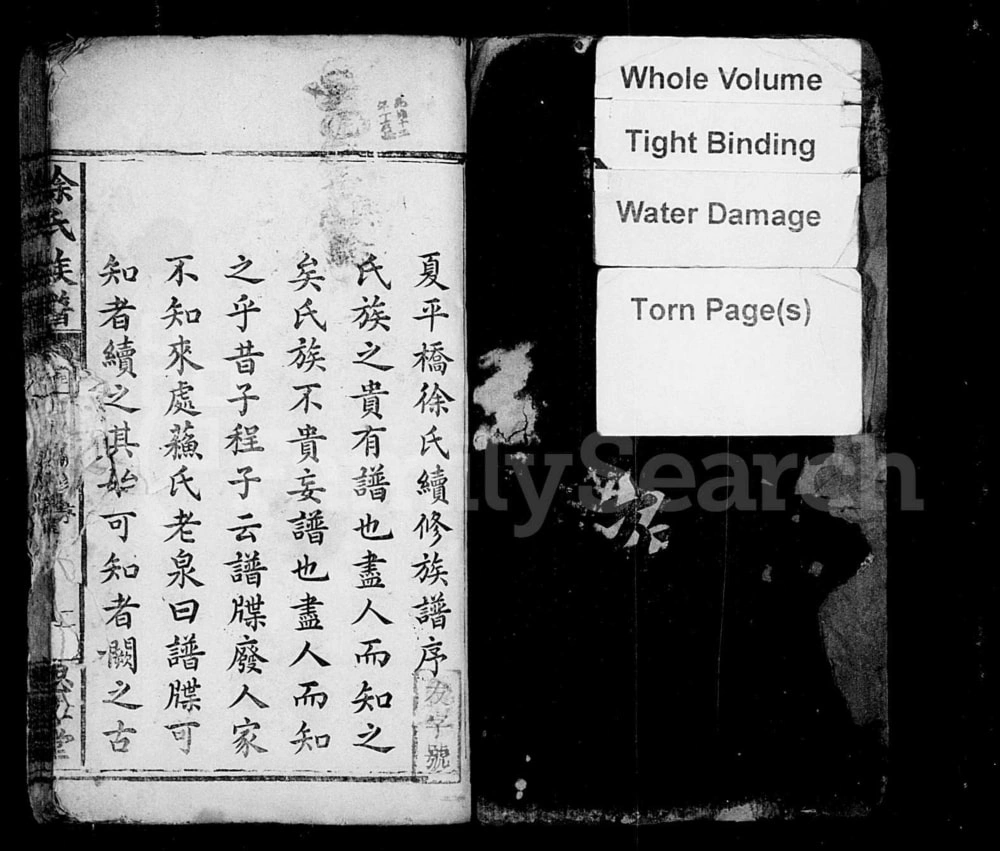 夏平橋徐氏續修族譜序
氏族之貴有譜也盡人而知之
矣氏族不貴妄譜也盡人而知
之乎昔子程子云譜牒廢人家
不知來處蘓氏老泉曰譜牒可
知者續之其始可知者闕之古
徐氏族譜
字號
Whole Volume
Tight Binding
Water Damage
Torn Page(s)
FamilySearch